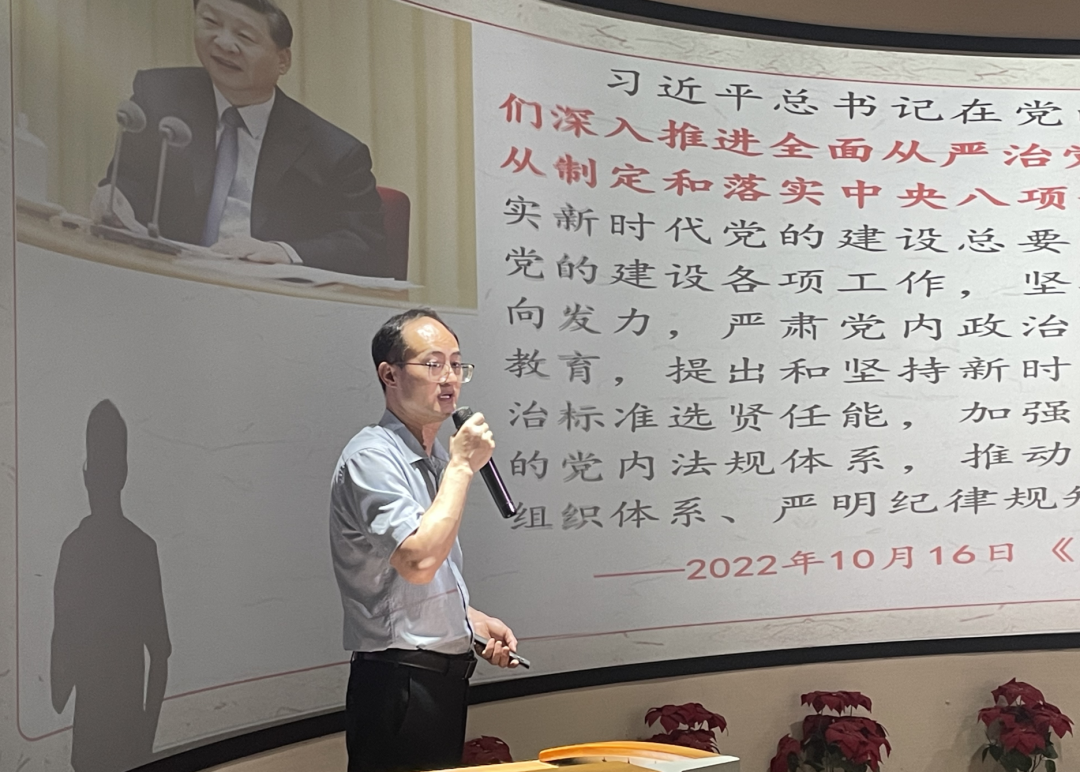 习近平总书记在党
们深入推进全面从严治党
从制定和落实中央八项
实新时代党的建设总要
党的建设各项工作，坚
向发力，严肃党内政治
教育，提出和坚持新时
治标准选贤任能，加强
的党内法规体系，推动
组织体系、严明纪律规
——2022年10月16日《